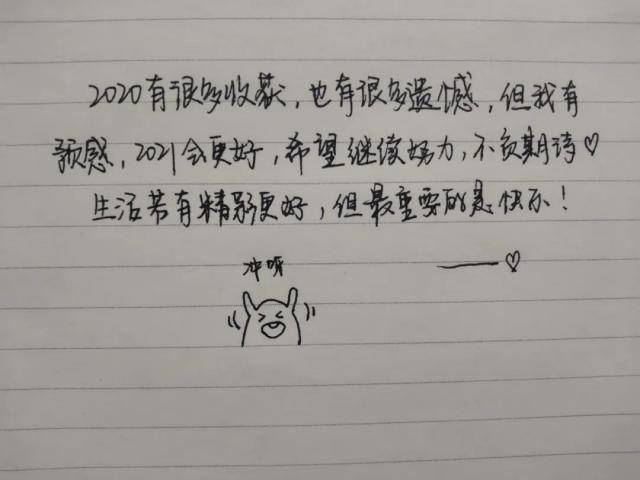 2020有很多收获，也有很多遗憾，但我有
预感，2021会更好，希望继续努力，不负期待♡
生活若有精彩更好，但最重要的是快乐！
冲呀
——♡